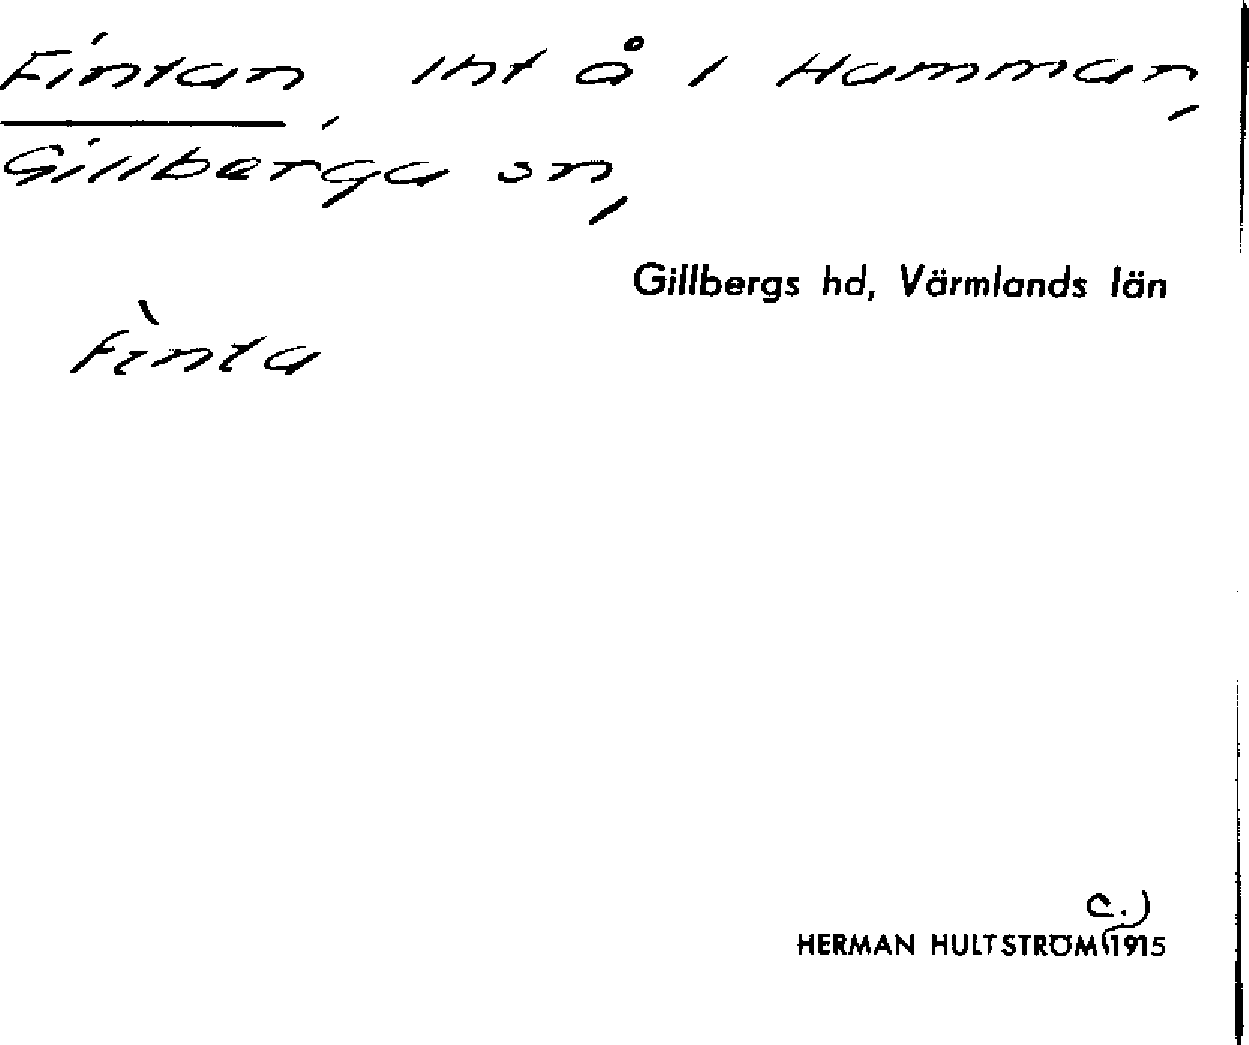 Fintan, int å i Hammar,
Gillberga sn,
Gillbergs hd, Värmlands län
fìnta
C.)
HERMAN HULTSTRÖM 1915